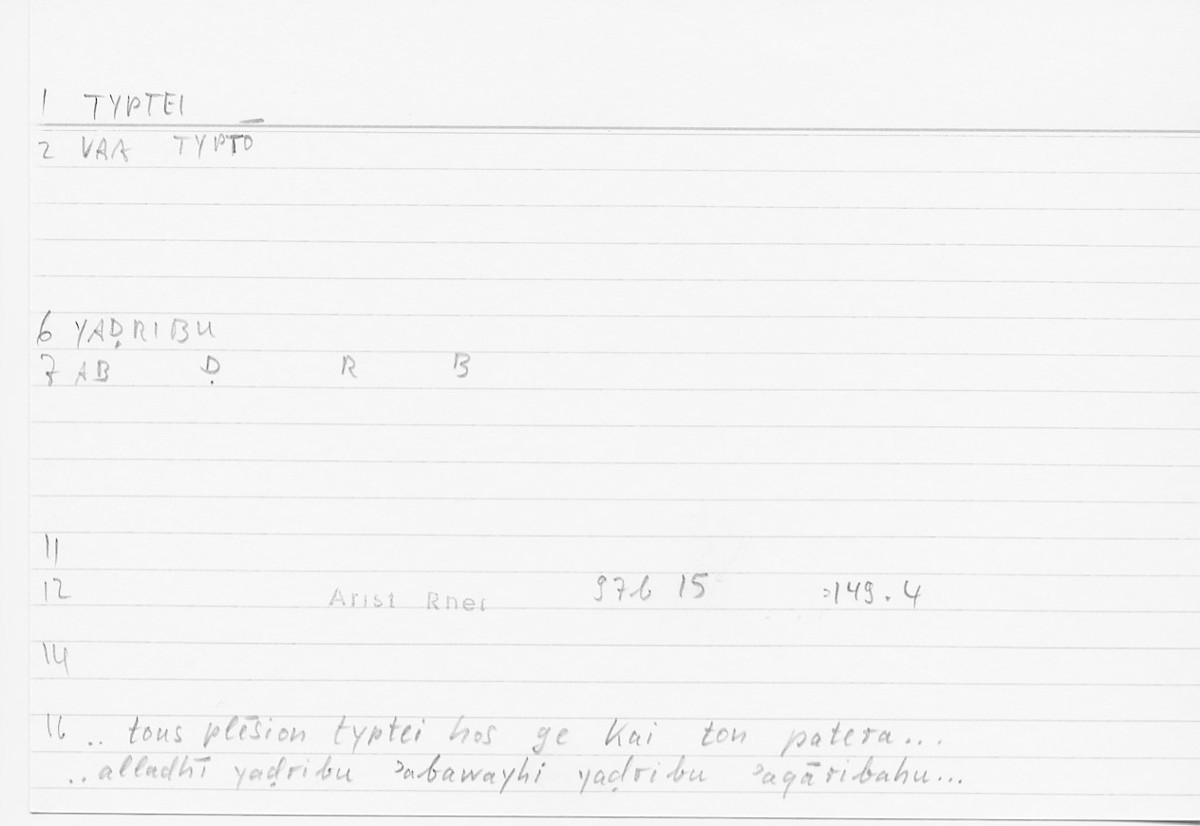 1 TYPTEI
2 VAA TYPTŌ
6 YAḌRIBU
7 AB Ḍ R B
11
12 Arist Rhet 97b 15 149.4
14
16 .. tous plēsion typtei hos ge kai ton patera...
..alladhī yaḍribu ʾabawayhi yaḍribu ʾaqāribahu...